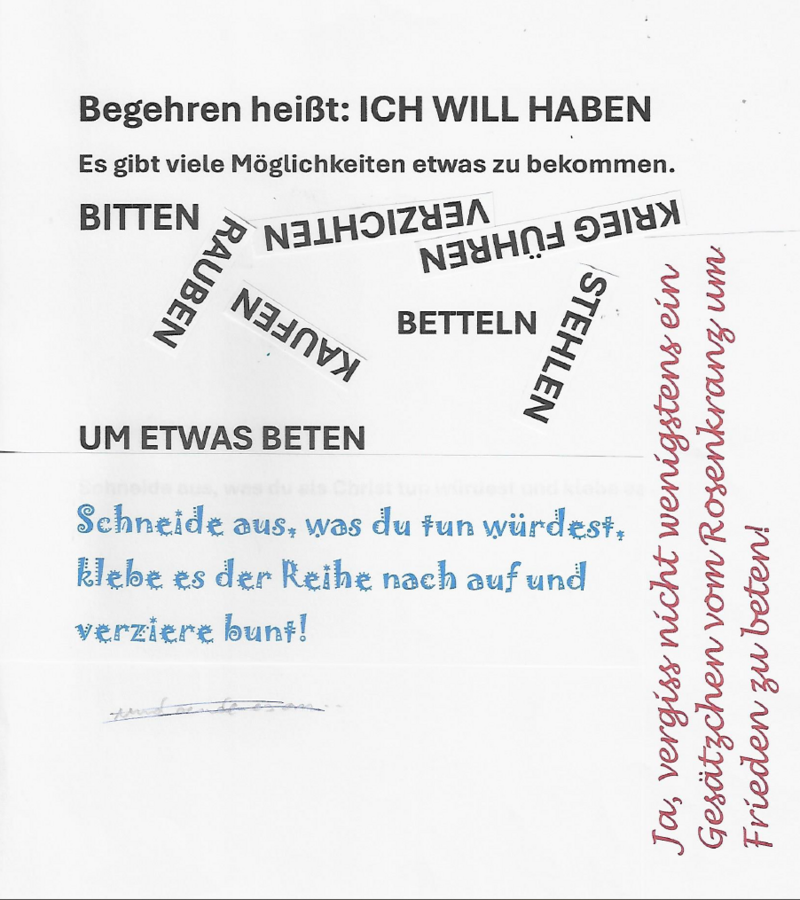 Begehren heißt: ICH WILL HABEN
Es gibt viele Möglichkeiten etwas zu bekommen.
BITTEN
RAUBEN
VERZICHTEN
KRIEG FÜHREN
KAUFEN
BETTELN
STEHLEN
UM ETWAS BETEN
Schneide aus, was du als Christ tun würdest und klebe es
Schneide aus, was du tun würdest,
klebe es der Reihe nach auf und
verziere bunt!
Ja, vergiss nicht wenigstens ein
Gesätzchen vom Rosenkranz um
Frieden zu beten!